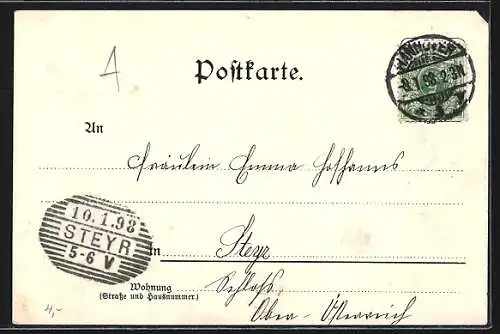 A
Postkarte.
HANNOVER
8.1.98.2-3N
An
Fräulein Emma Hoffmanns
10.1.98
STEYR
5-6 V
in Steyr
Wohnung
(Straße und Hausnummer.)
Schloss,
Ober-Österreich
4,-